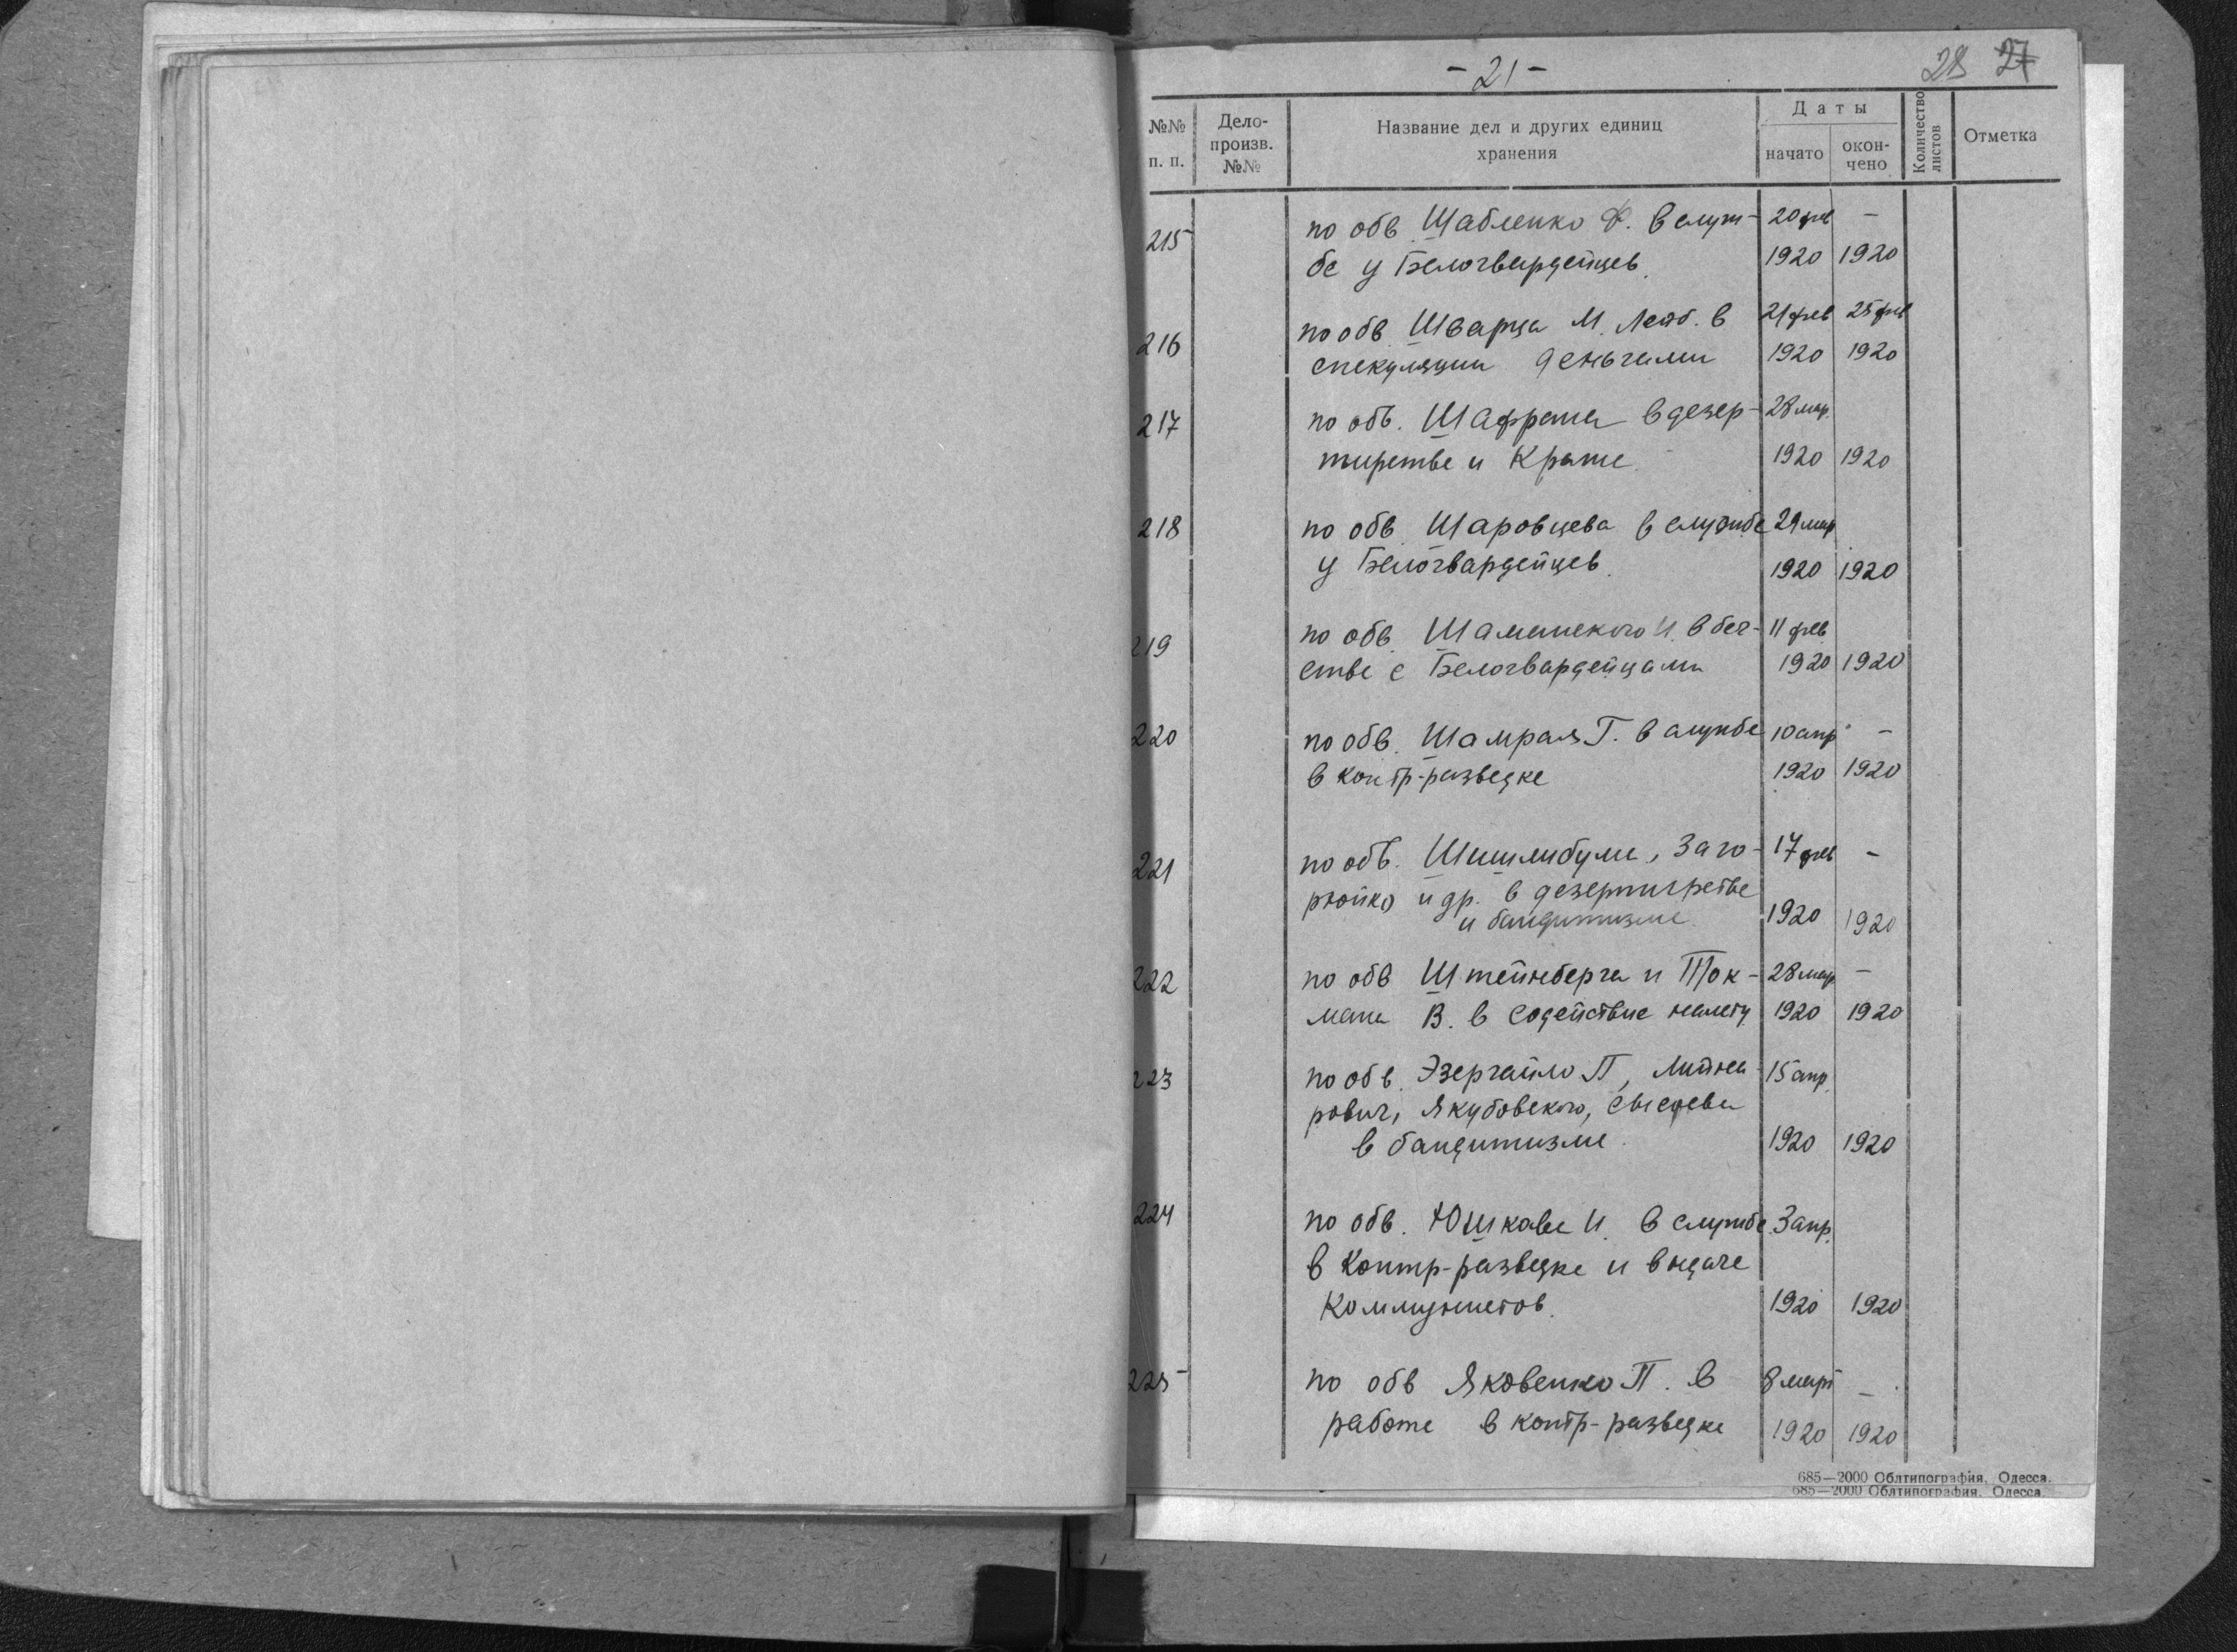 - 21 -
28 27
№№ п. п.
Дело-произв. №№
Название дел и других единиц хранения
Даты
начато
окон-чено
Количество листов
Отметка
215 по обв. Шабленко Ф. в служ- 20 фев –
бе у Белогвардейцев. 1920 1920
216 по обв. Шварца М. Лейб. в 21 фев 25 фев
спекуляции деньгами 1920 1920
217 по обв. Шафрана в дезер- 28 мар.
тирстве и Краже. 1920 1920
218 по обв. Шаровцева в службе 29 мар
у Белогвардейцев. 1920 1920
219 по обв. Шаманского И. в бег- 11 фев
стве с Белогвардейцами 1920 1920
220 по обв. Шамрая Г. в службе 10 апр –
в контр-разведке 1920 1920
221 по обв. Заго- 17 фев –
ройко и др. в дезертирстве
и бандитизме. 1920 1920
222 по обв Штейнберга и Ток- 28 мар –
мана В. в содействие налету 1920 1920
223 по обв. П., 15 апр.
Якубовского, Сысоева
в бандитизме. 1920 1920
224 по обв. Юшкова И. в службе 3 апр.
в Контр-разведке и выдаче
Коммунистов. 1920 1920
225 по обв Яковенко П. в 8 март –
работе в контр-разведке 1920 1920
685—2000 Облтипография, Одесса.
685—2000 Облтипография, Одесса.